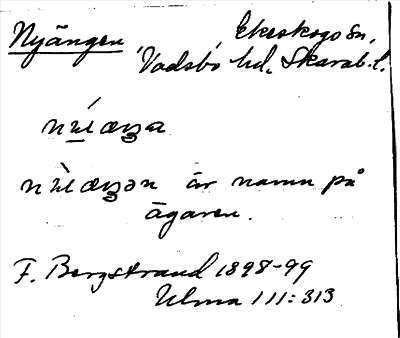 Nyängen Ekeskogs sn,
Vadsbo hd, Skarab. l.
är namn på
ägaren.
F. Bergstrand 1898-99
Ulma 111:313